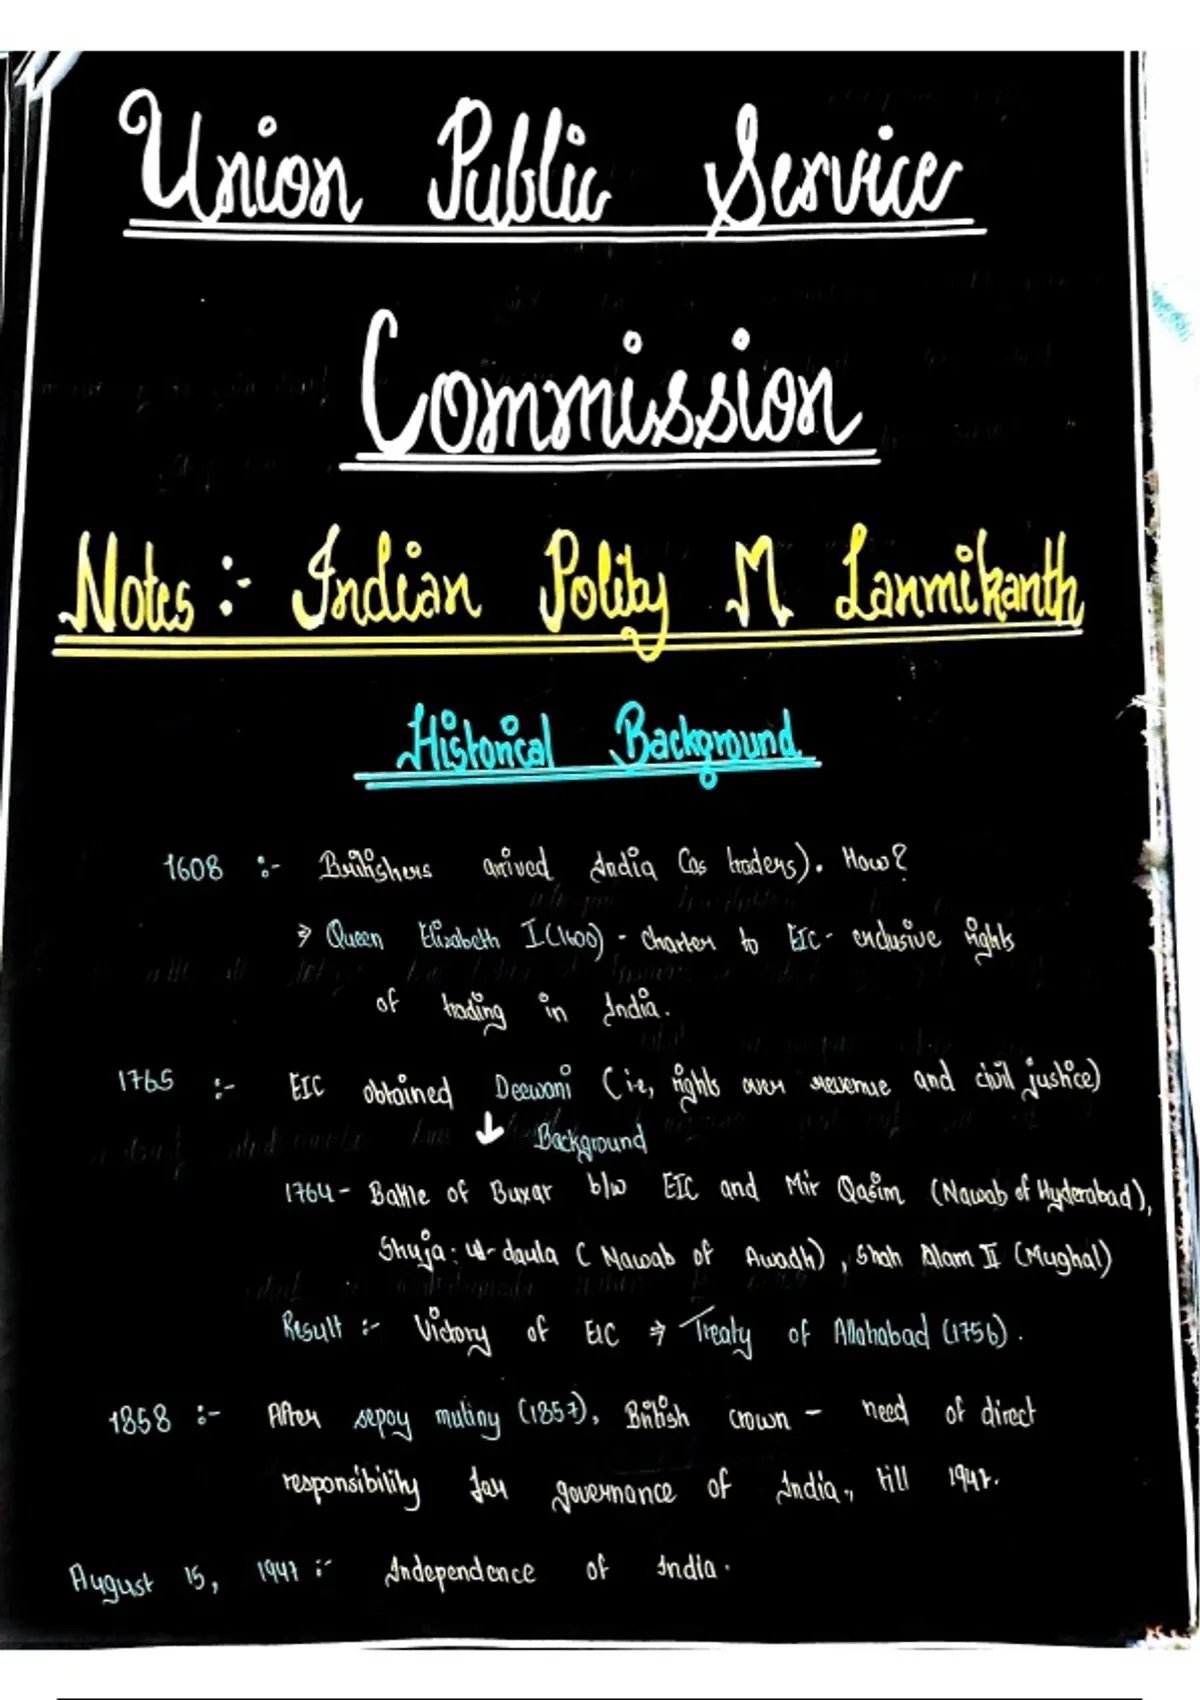 Union Public Service
Commission
Notes :- Indian Polity M Laxmikanth
Historical Background
1608 :- Britishers arrived India (as traders). How?
⇒ Queen Elizabeth I (1600) - charter to EIC - exclusive rights
of trading in India.
1765 :- EIC obtained Deewani (i.e, rights over revenue and civil justice)
↓ Background
1764 - Battle of Buxar b/w EIC and Mir Qasim (Nawab of Hyderabad),
Shuja-ud-daula (Nawab of Awadh), Shah Alam II (Mughal)
Result :- Victory of EIC ⇒ Treaty of Allahabad (1756).
1858 :- After sepoy mutiny (1857), British crown - need of direct
responsibility for governance of India, till 1947.
August 15, 1947 :- Independence of India.